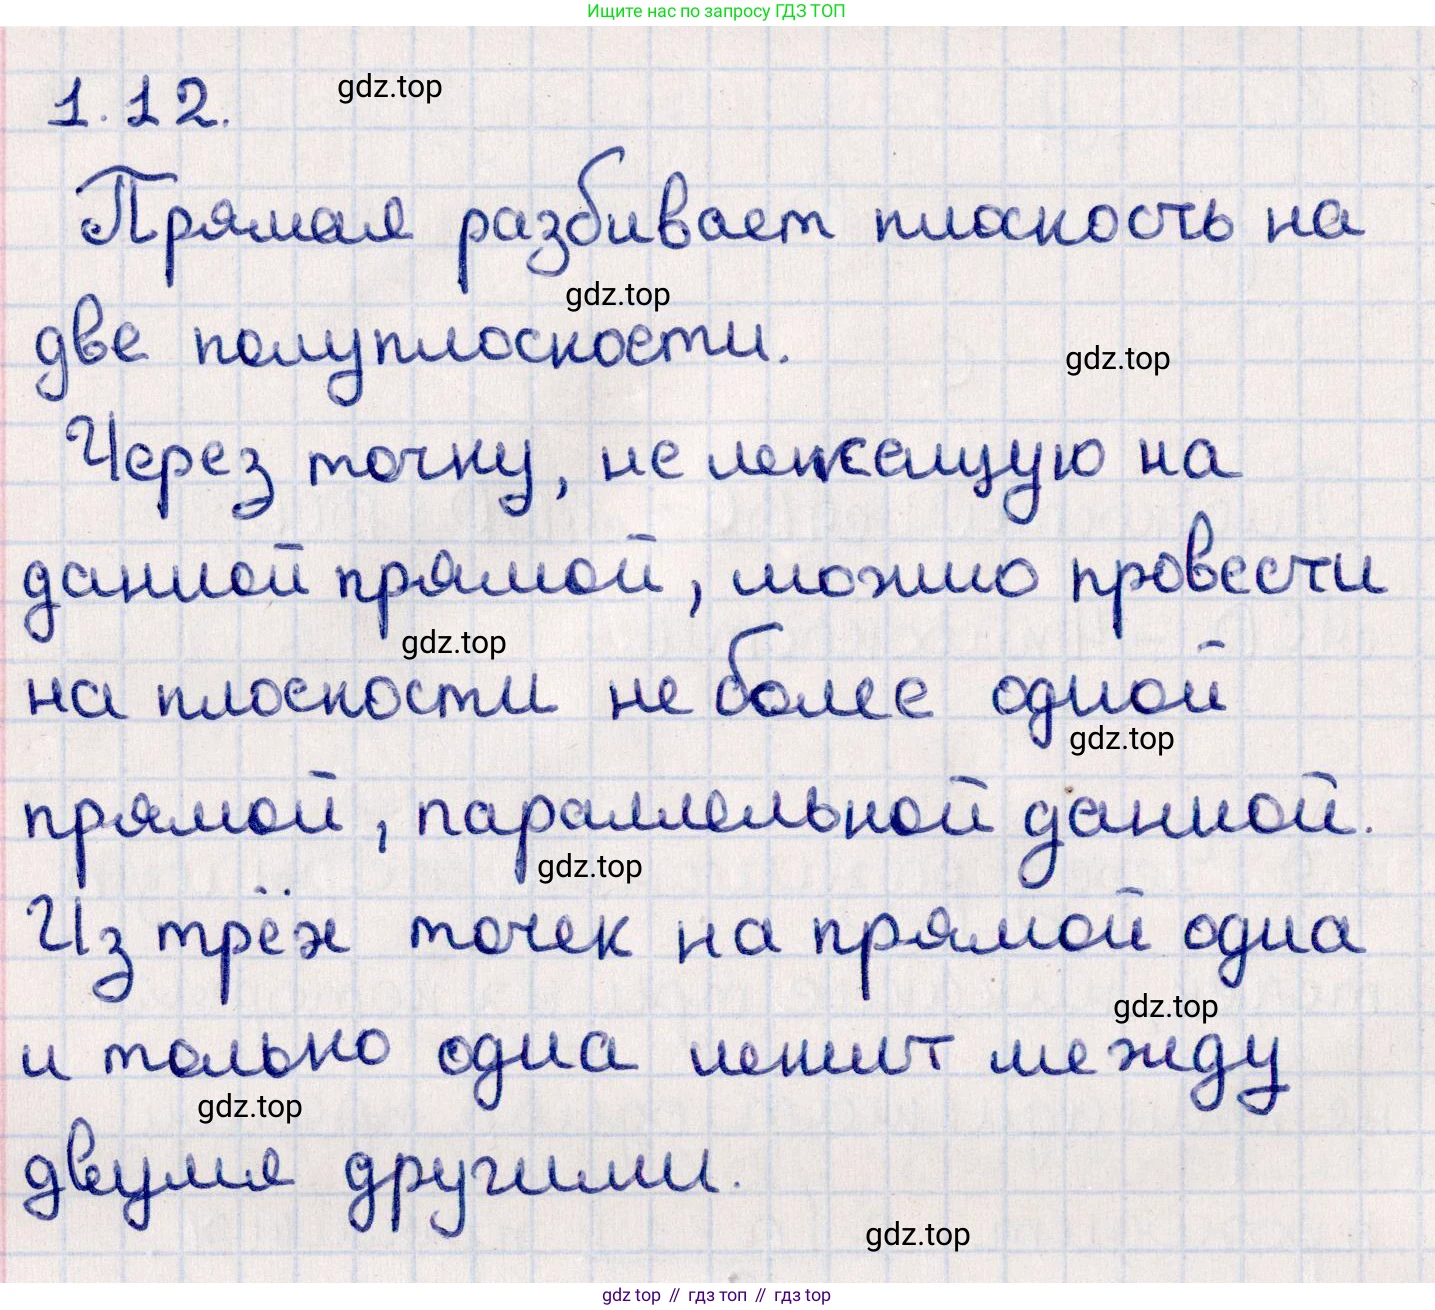 Ищите нас по запросу ГДЗ ТОП
1.12.
gdz.top
Прямая разбивает плоскость на
gdz.top
две полуплоскости.
gdz.top
Через точку, не лежащую на
данной прямой, можно провести
gdz.top
на плоскости не более одной
gdz.top
прямой, параллельной данной.
gdz.top
Из трёх точек на прямой одна
gdz.top
и только одна лежит между
gdz.top
двумя другими.
gdz.top
gdz top // гдз топ // гдз top